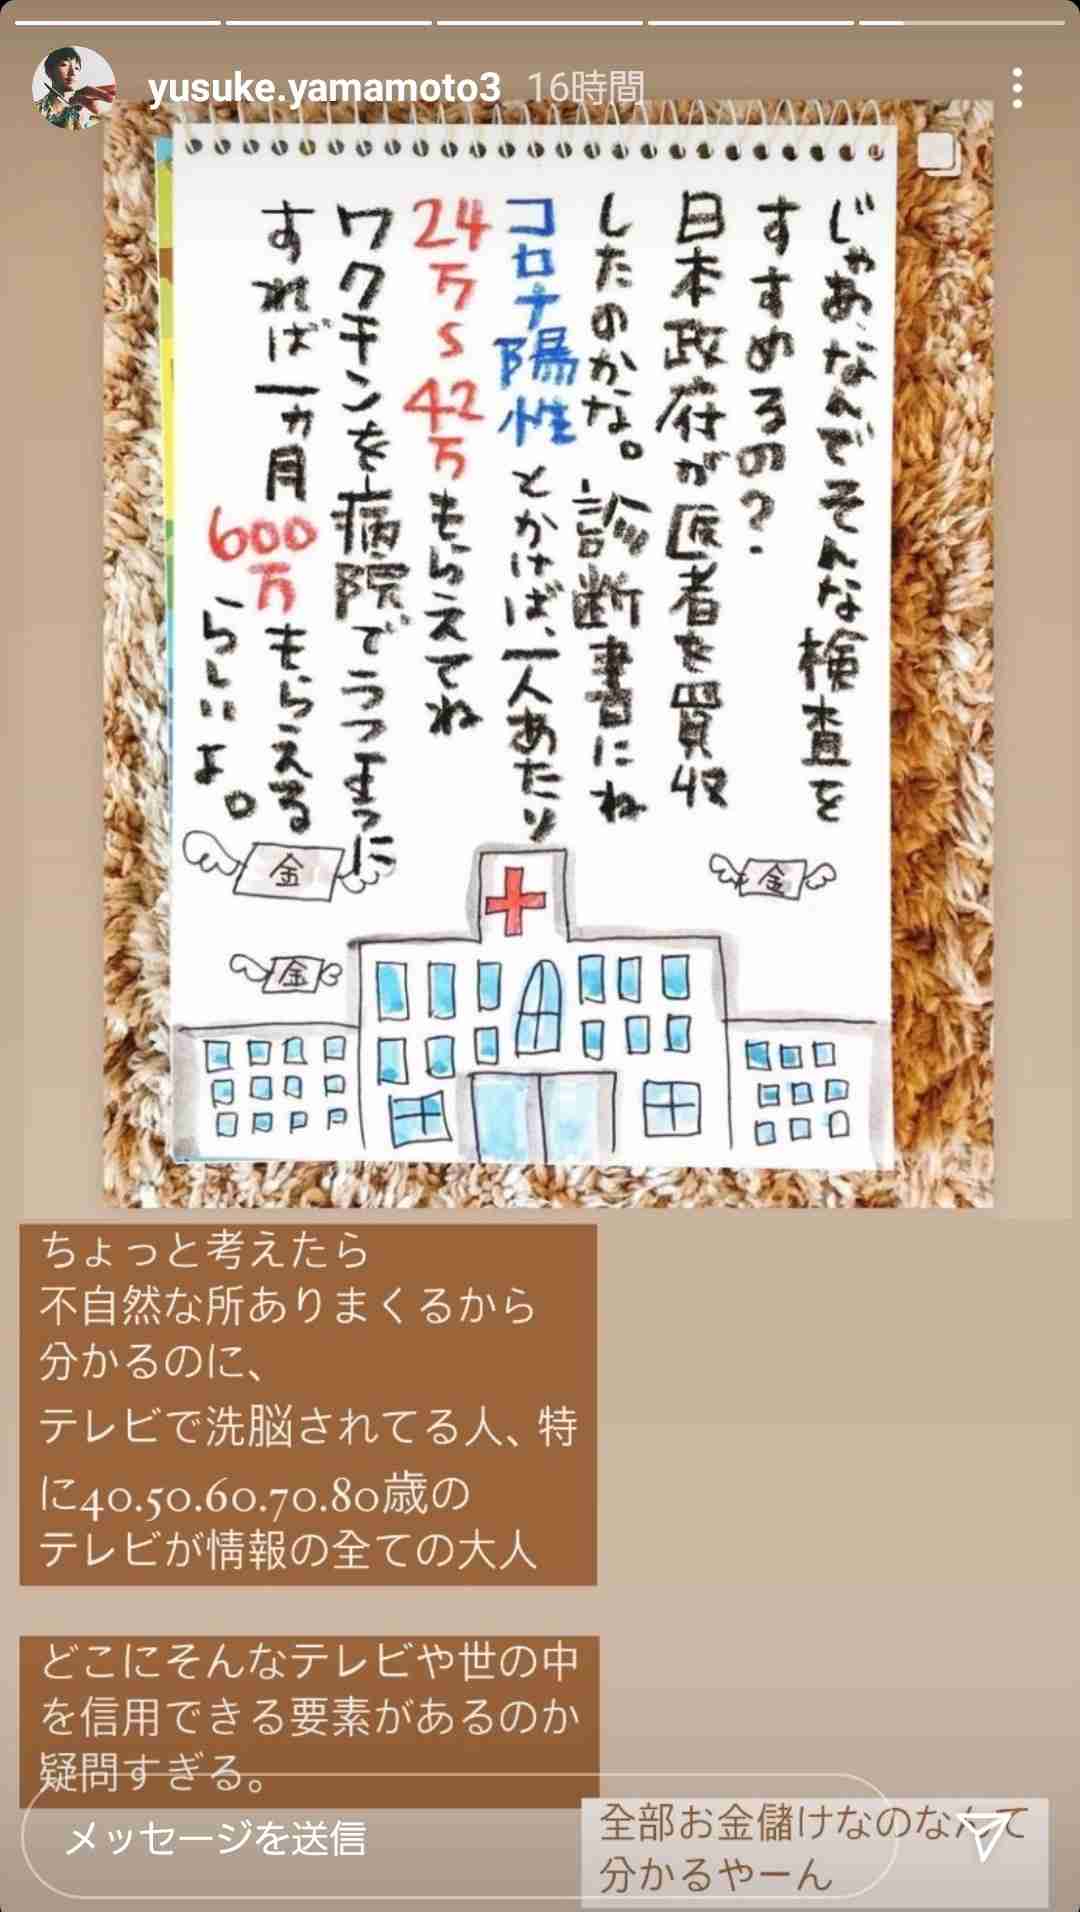 yusuke.yamamoto3 16時間
じゃあ、なんでそんな検査を
すすめるの?
日本政府が医者を買収
したのかな。診断書にね
コロナ陽性とかけば、一人あたり
24万~42万もらえてね
ワクチンを病院でうつまうに
すれば一ヵ月600万もらえる
らしいよ。
金
金
金
ちょっと考えたら
不自然な所ありまくるから
分かるのに、
テレビで洗脳されてる人、特
に40.50.60.70.80歳の
テレビが情報の全ての大人
どこにそんなテレビや世の中
を信用できる要素があるのか
疑問すぎる。
全部お金儲けなのなんて
分かるやーん
メッセージを送信